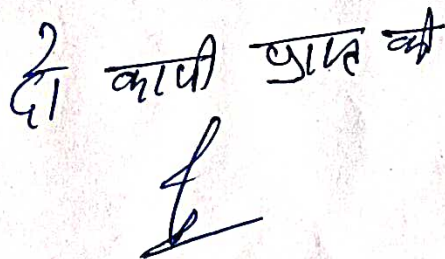 दो कापी प्राप्त की